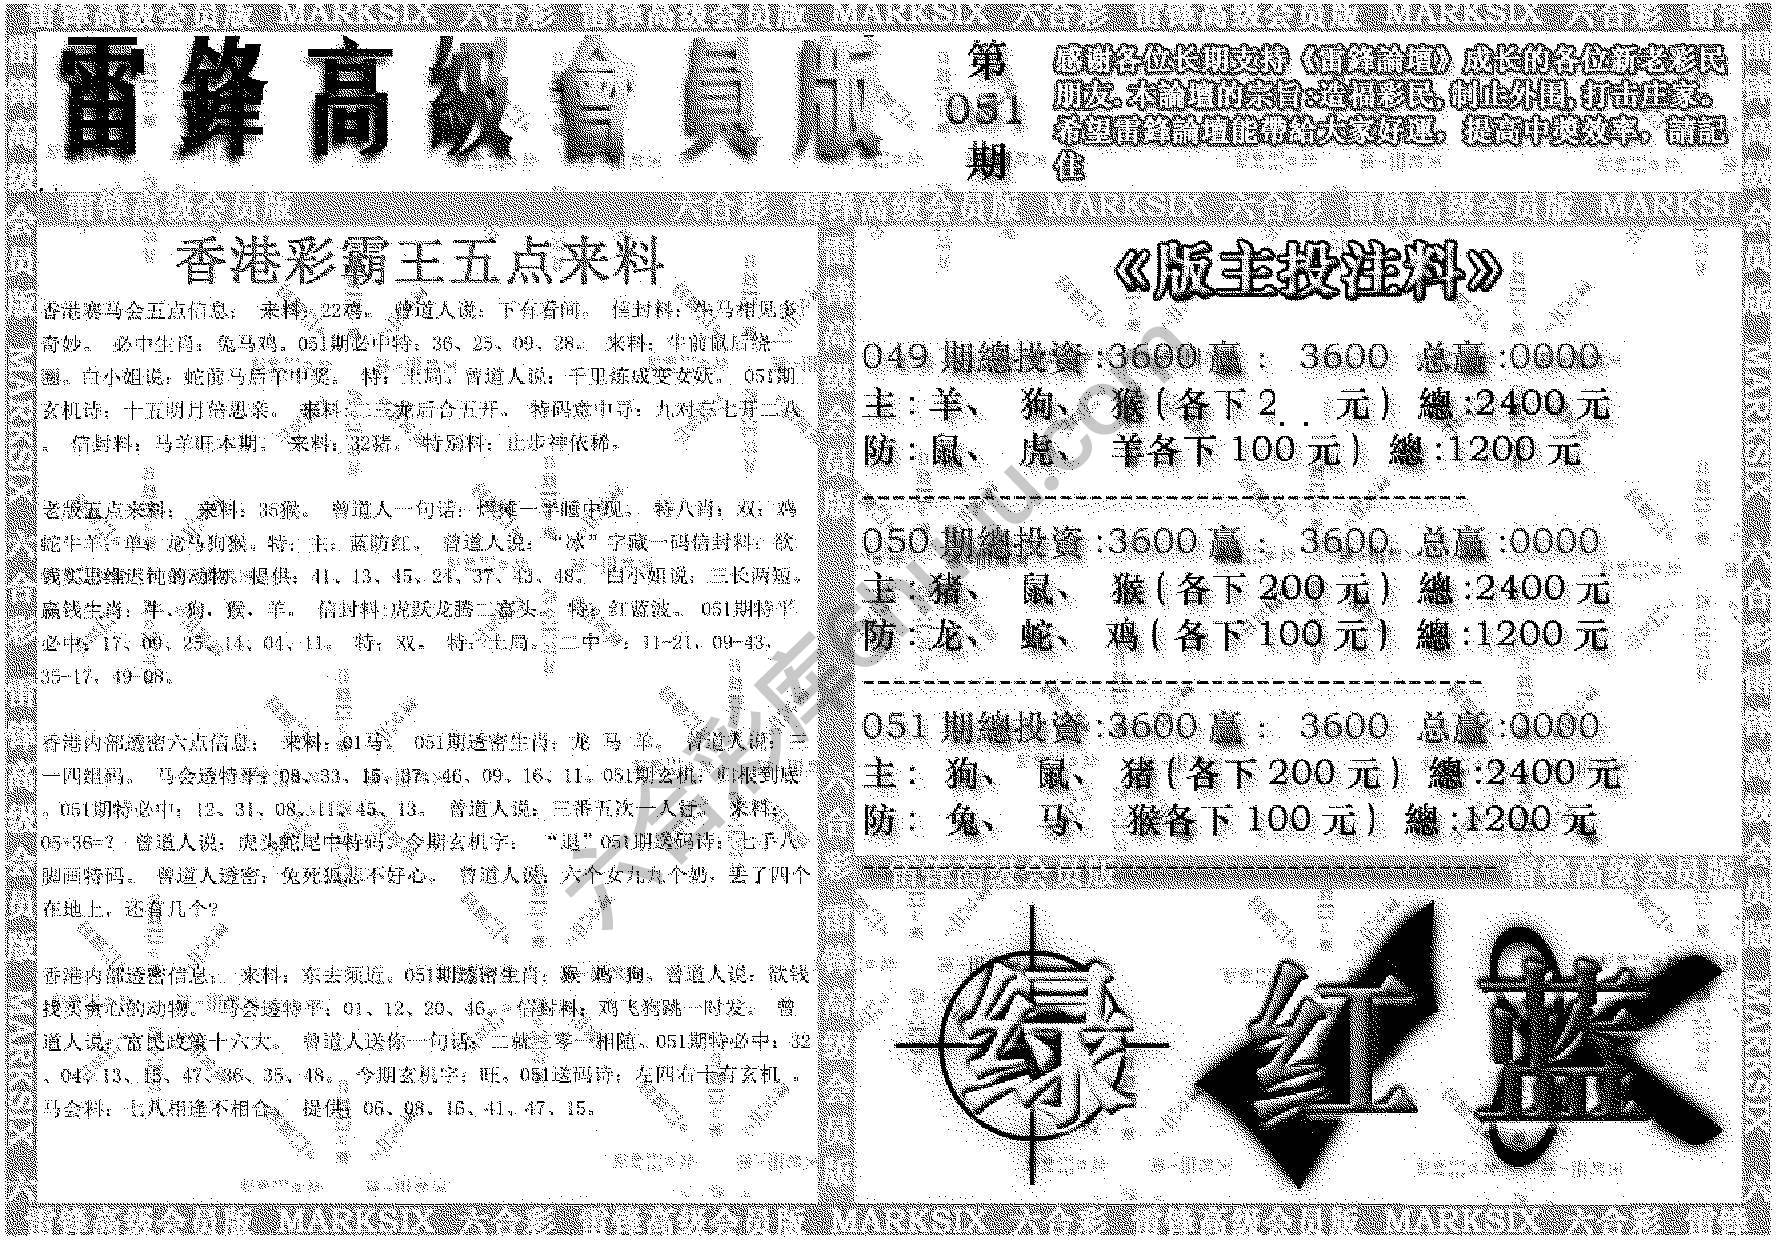 六合彩 雷锋高级会员版 MARKSIX 六合彩 雷锋高级会员版 MARKSIX 六合彩
雷鋒高級會員版
第
051
期
感谢各位长期支持《雷鋒論壇》成长的各位新老彩民
朋友.本論壇的宗旨:造福彩民,制止外围,打击庄家。
希望雷鋒論壇能帶給大家好運。提高中獎效率。請記
住
香港彩霸王五点来料
香港赛马会五点信息: 来料:22鸡。 曾道人说:下有看间。 信封料:牛马相见多
奇妙。 必中生肖:兔马鸡。051期必中特:36、25、09、28。 来料:牛前鼠后绕一
圈。白小姐说:蛇前马后羊中奖。 特:土局。曾道人说:千里炼成变女妖。 051期
玄机诗:十五明月倍思亲。 来料:二三龙后合五开。 特码意中寻:九对 七开二八
。 信封料:马羊旺本期。 来料:32猪。 特别料:止步神依稀。
老版五点来料: 来料:35猴。 曾道人一句话: 一字瞳中现。 特八肖:双:鸡
蛇牛羊:单:龙马狗猴。特:主:蓝防红。 曾道人说:“冰”字藏一码信封料:欲
钱买思维迟钝的动物。提供:41、13、45、24、37、43、48。 白小姐说:三长两短。
赢钱生肖:牛、狗、猴、羊。 信封料:虎跃龙腾二富头。 特:红蓝波。 051期特平
必中:17、09、25、14、04、11。 特:双。 特:土局。 二中一:11-21,09-43,
35-17,49-08。
香港内部透密六点信息: 来料:01马。 051期透密生肖:龙 马 羊。 曾道人说:三
一四组码。 马会透特平:08、33、15、37、46、09、16、11。051期玄机:归根到底
。051期特必中:12、31、08、11、45、13。 曾道人说:三番五次一人话。 来料:
05+36=? 曾道人说:虎头蛇尾中特码。今期玄机字: “退”051期送码诗:七手八
脚画特码。 曾道人透密:兔死狐悲不好心。 曾道人说:六个女九九个奶,丢了四个
在地上,还有几个?
香港内部透密信息: 来料:东去须近。051期透密生肖:猴 鸡 狗。曾道人说:欲钱
找买贪心的动物。 马会透特平:01、12、20、46。 信封料:鸡飞狗跳一时发。 曾
道人说:富民政策十六大。 曾道人送你一句话:二就三零一相随。051期特必中:32
、04、13、15、47、36、35、48。 今期玄机字:旺。051送码诗:左四右十有玄机 。
马会料:七八相逢不相合。 提供:06、08、16、41、47、15。
《版主投注料》
049期總投資:3600赢: 3600 总赢:0000
主:羊、 狗、 猴(各下2 元) 總:2400元
防:鼠、 虎、 羊各下100元) 總:1200元
050期總投資:3600赢: 3600 总赢:0000
主:猪、 鼠、 猴(各下200元) 總:2400元
防:龙、 蛇、 鸡(各下100元) 總:1200元
051期總投資:3600赢: 3600 总赢:0000
主: 狗、 鼠、 猪(各下200元) 總:2400元
防: 兔、 马、 猴各下100元) 總:1200元
绿 红 蓝
雷锋高级会员版 MARKSIX 六合彩 雷锋高级会员版 MARKSIX 六合彩 雷锋高级会员版 MARKSIX 六合彩